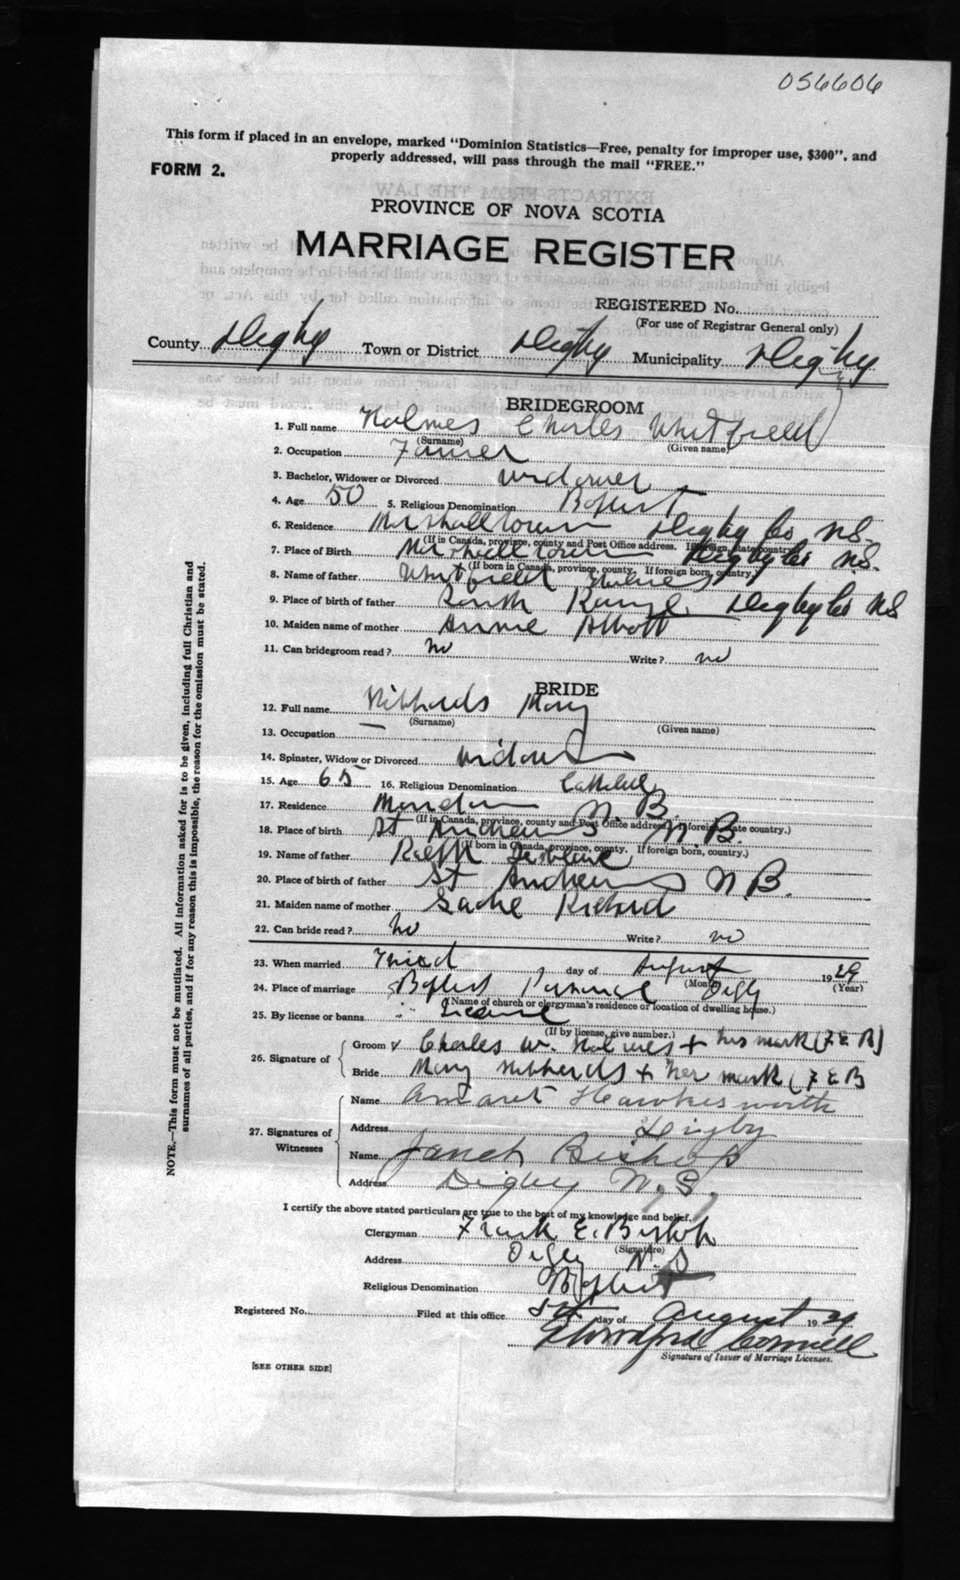 056606
This form if placed in an envelope, marked "Dominion Statistics—Free, penalty for improper use, $300", and
properly addressed, will pass through the mail "FREE."
FORM 2.
PROVINCE OF NOVA SCOTIA
MARRIAGE REGISTER
REGISTERED No.
(For use of Registrar General only)
County Digby Town or District Digby Municipality Digby
BRIDEGROOM
1. Full name Holmes Charles Whitfield
(Surname) (Given name)
2. Occupation Farmer
3. Bachelor, Widower or Divorced widower
4. Age 50 5. Religious Denomination Baptist
6. Residence Marshalltown Digby Co N.S.
(If in Canada, province, county and Post Office address. If foreign, state country.)
7. Place of Birth Marshalltown Digby Co N.S.
(If born in Canada, province, county. If foreign born, country.)
8. Name of father Whitfield Holmes
9. Place of birth of father South Range Digby Co NS
10. Maiden name of mother Annie Abbott
11. Can bridegroom read? no Write? no
BRIDE
12. Full name Mary
(Surname) (Given name)
13. Occupation —
14. Spinster, Widow or Divorced widow
15. Age 65 16. Religious Denomination Catholic
17. Residence N. B.
(If in Canada, province, county and Post Office address. If foreign, state country.)
18. Place of birth St Andrews N.B.
(If born in Canada, province, county. If foreign born, country.)
19. Name of father Ralph
20. Place of birth of father St Andrews N.B.
21. Maiden name of mother Richard
22. Can bride read? no Write? no
23. When married Third day of August 1929
(Month) (Year)
24. Place of marriage Baptist Parsonage Digby
(Name of church or clergyman's residence or location of dwelling house.)
25. By license or banns License
(If by license, give number.)
26. Signature of
Groom Charles W. Holmes + his mark (F E B)
Bride Mary + her mark (F E B
27. Signatures of Witnesses
Name Hawkesworth
Address Digby
Name Janet Bishop
Address Digby N.S.
I certify the above stated particulars are true to the best of my knowledge and belief.
Clergyman Frank E. Bishop
(Signature)
Address Digby N.S
Religious Denomination Baptist
Registered No. Filed at this office 5th day of August 1929
Signature of Issuer of Marriage Licenses.
[SEE OTHER SIDE]
NOTE.—This form must not be mutilated. All information asked for is to be given, including full Christian and
surnames of all parties, and if for any reason this is impossible, the reason for the omission must be stated.